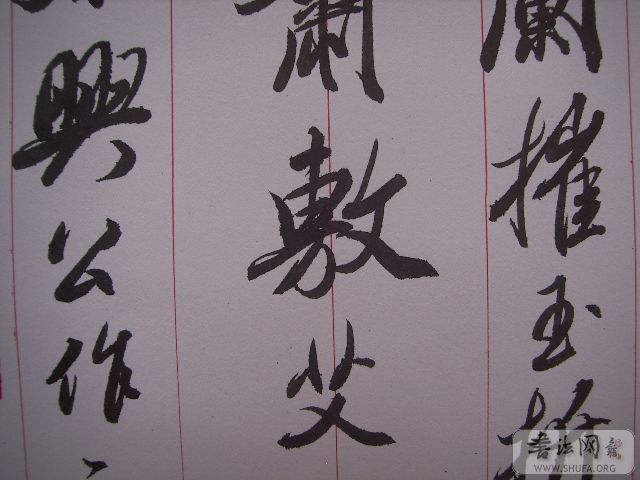 蘭摧玉折
蕭敷艾
興公作
書法网
WWW.SHUFA.ORG